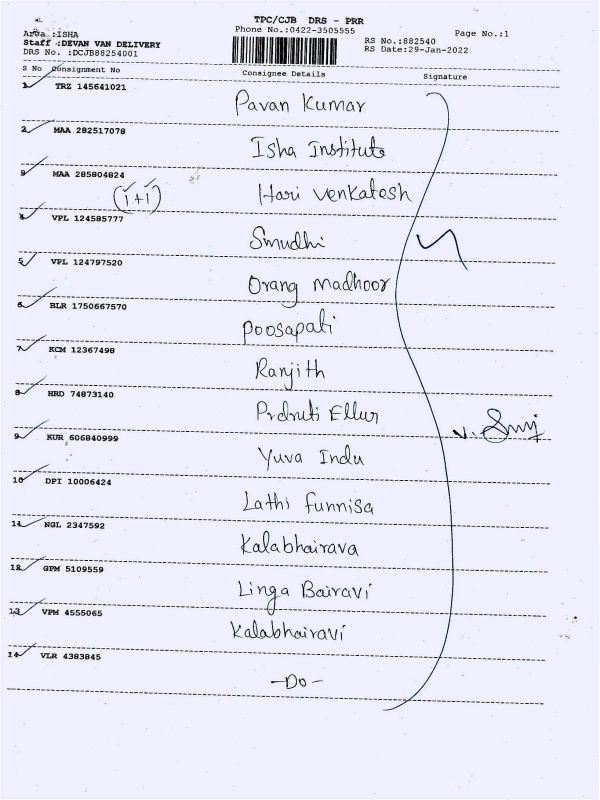 TPC/CJB DRS - PRR
Area :ISHA
Phone No.:0422-3505555
Page No.:1
Staff :DEVAN VAN DELIVERY
RS No.:882540
DRS No. :DCJB88254001
RS Date:29-Jan-2022
S No Consignment No Consignee Details Signature
1 TRZ 145641021 Pavan Kumar
2 MAA 282517078 Isha Institute
3 MAA 285804824 Hari Venkatesh
(1+1)
4 VPL 124585777 Smudhi
5 VPL 124797520 Orang Madhoor
6 BLR 1750667570 Poosapati
7 KCM 12367498 Ranjith
8 HRD 74873140 Prdruti Ellur
9 KUR 606840999 Yuva Indu
10 DPI 10006424 Lathi funnisa
11 NGL 2347592 Kalabhairava
12 GPM 5109559 Linga Bairavi
13 VPM 4555065 Kalabhairavi
14 VLR 4383845 -Do-